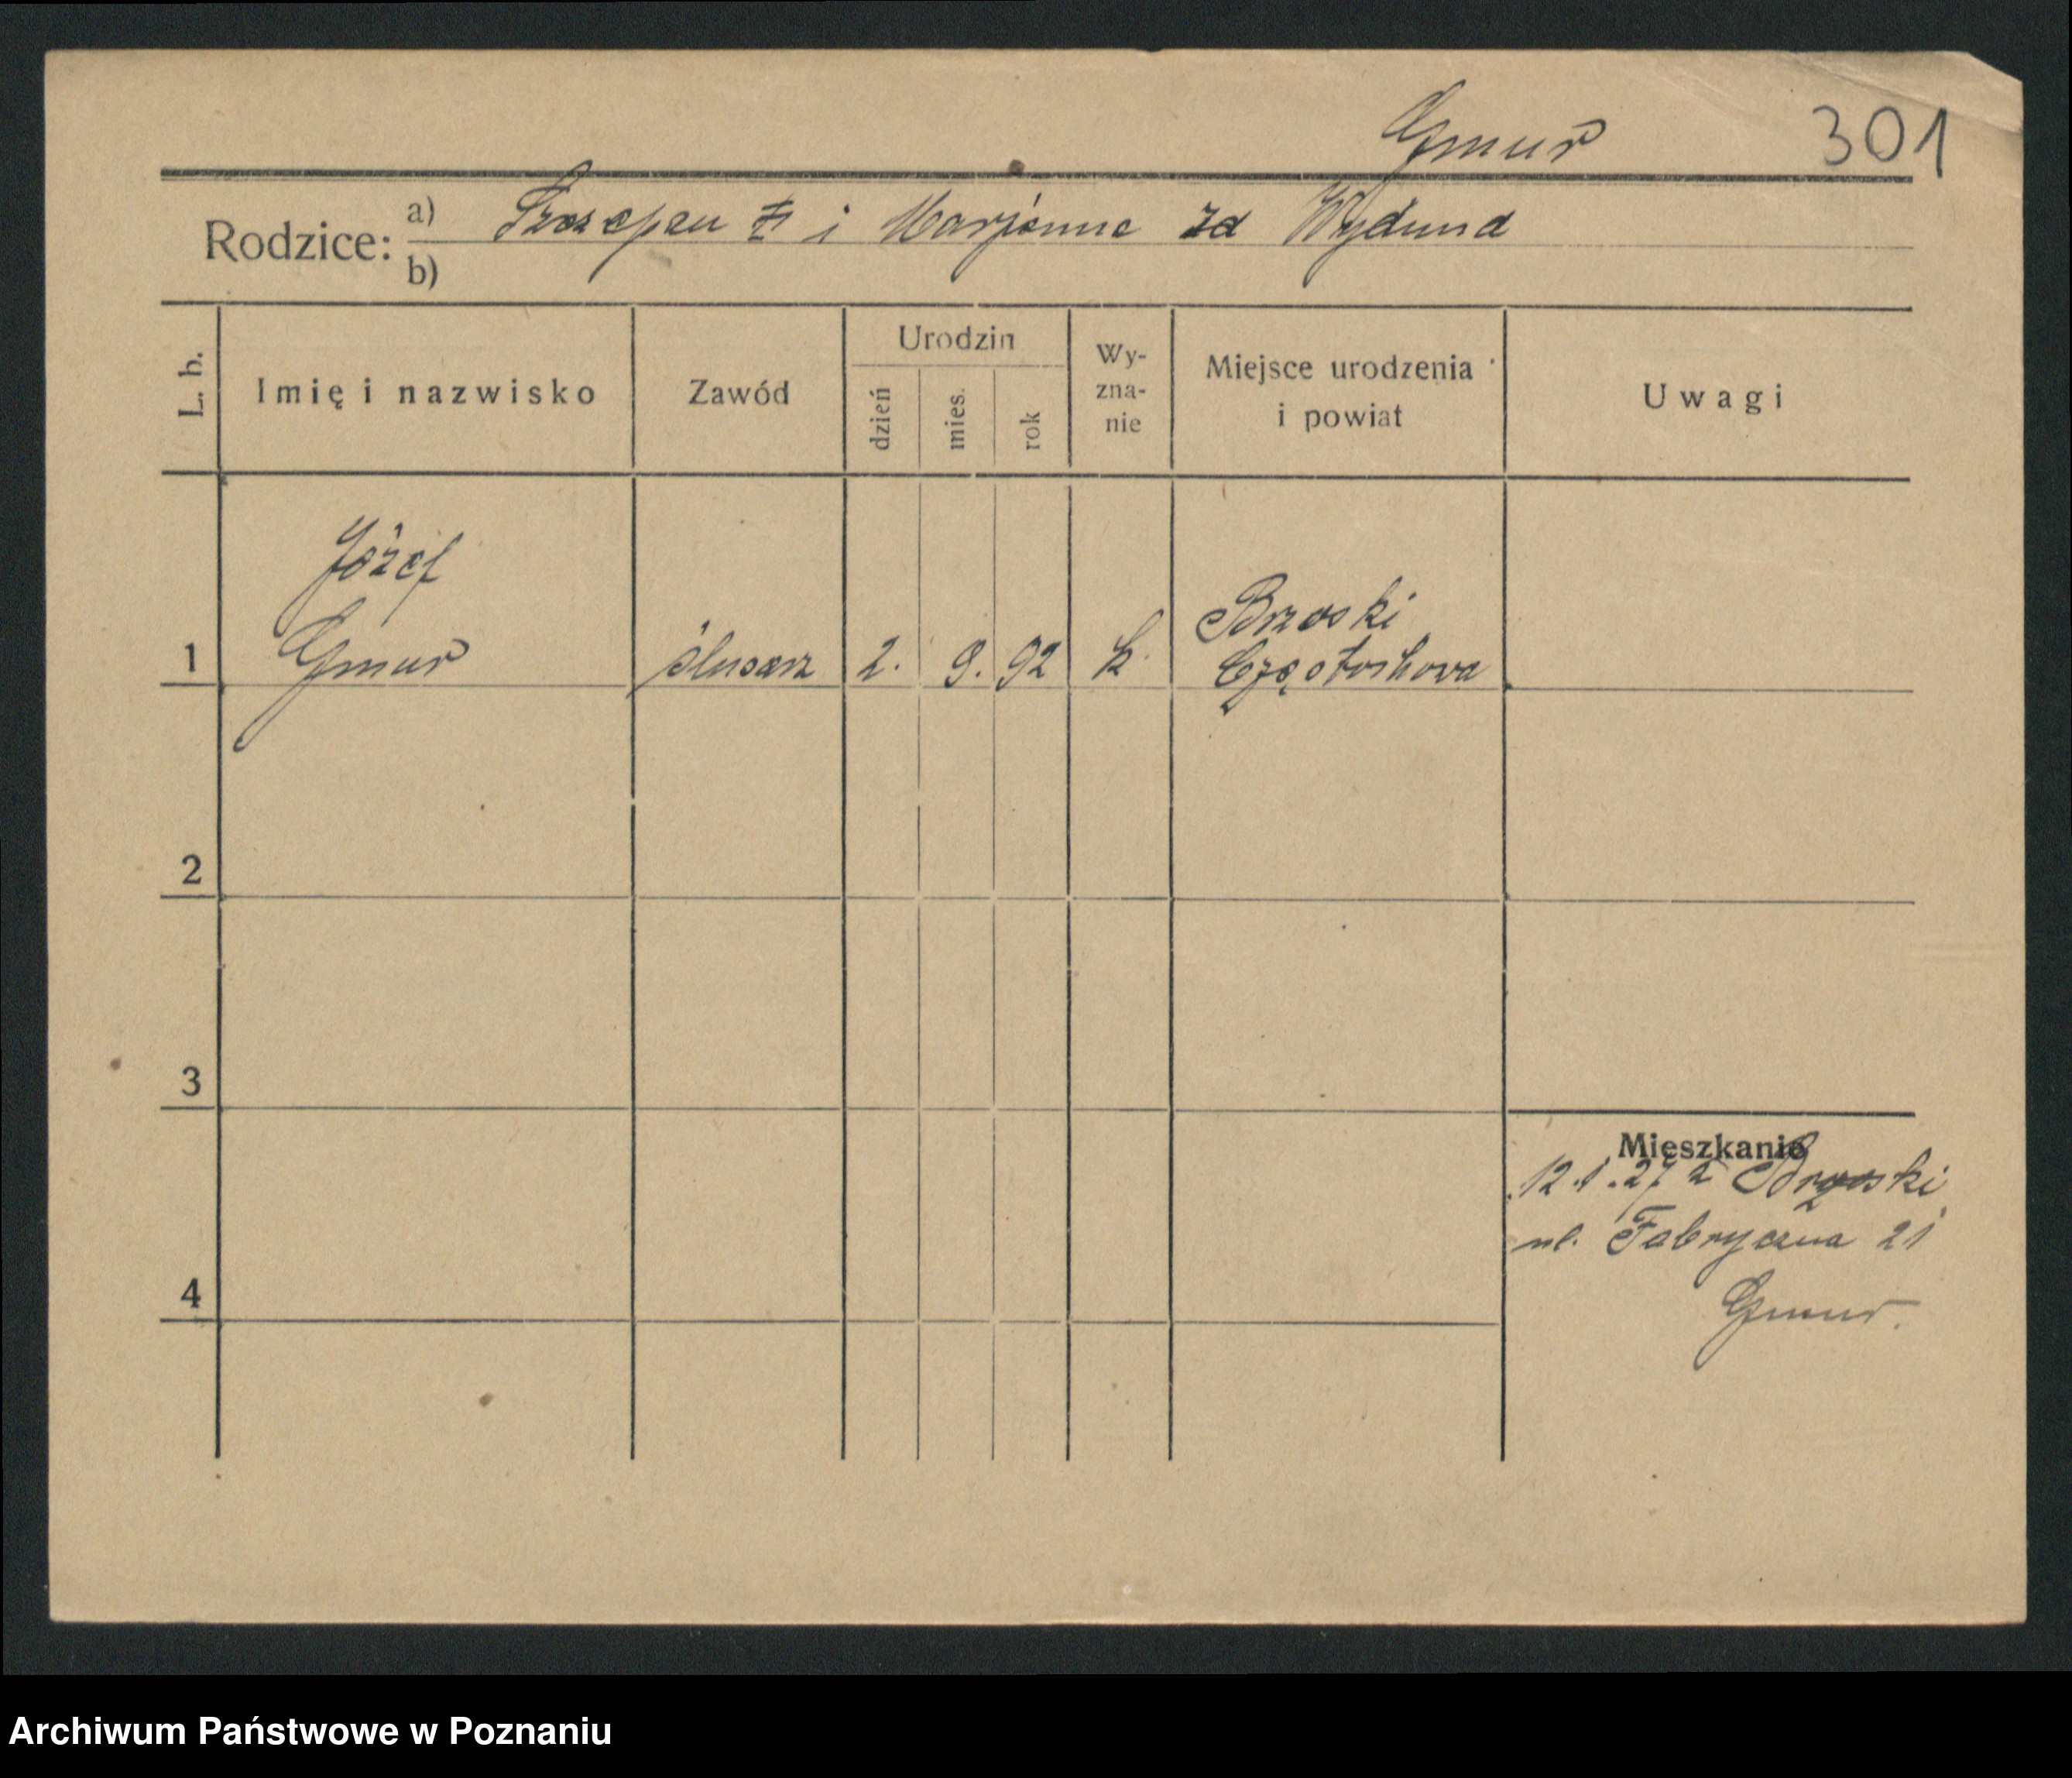 Gmur 301
Rodzice: a) Szczepan † i Marjanna zd Wydmd
b)
L. b. Imię i nazwisko Zawód Urodzin dzień mies. rok Wyznanie Miejsce urodzenia i powiat Uwagi
Józef
Gmur
1 ślusarz 2. 9. 92 k. Brzoski
Częstochowa
2
3
Mieszkanie
12.1.27 z Brzoski
ul. Fabryczna 21
4 Gmur.
Archiwum Państwowe w Poznaniu